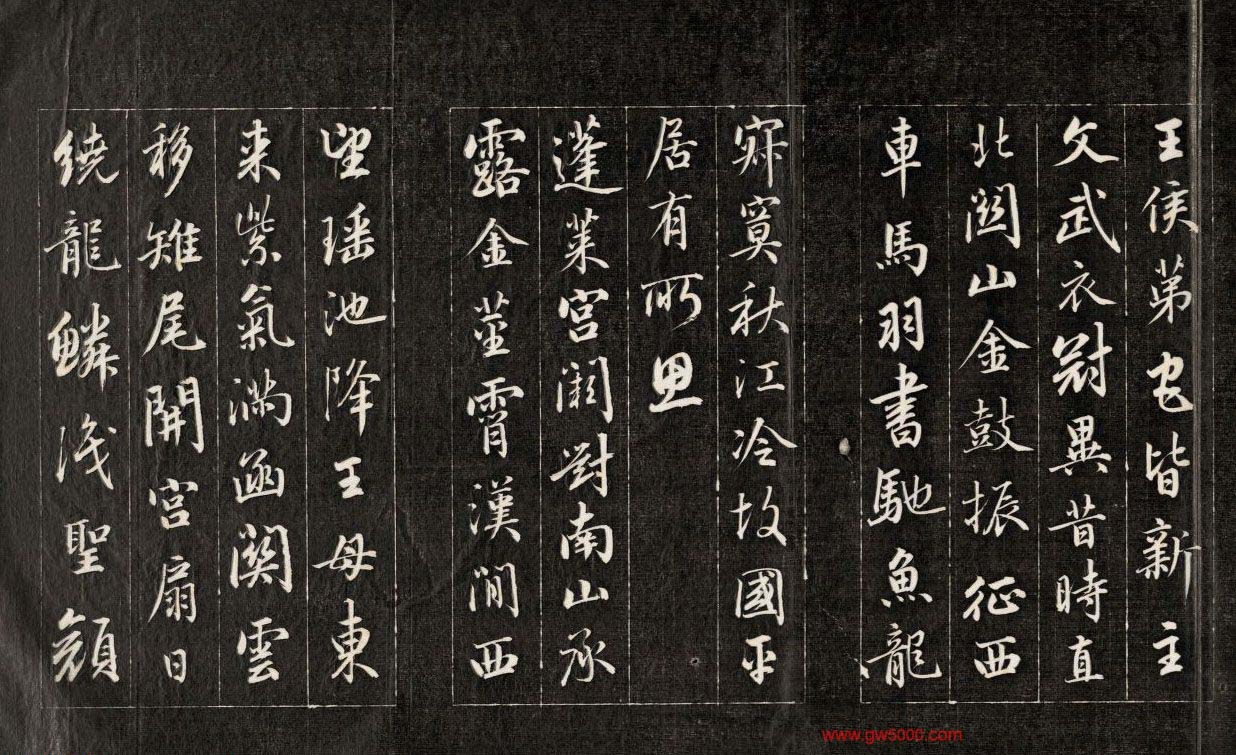 王侯苐宅皆新主
文武衣冠異昔時直
北関山金鼓振征西
車馬羽書馳魚龍
寂寞秋江冷故國平
居有所思
蓬萊宮闕對南山承
露金莖霄漢間西
望瑤池降王母東
来紫氣滿函関雲
移雉尾開宮扇日
繞龍鱗識聖顔
www.gw5000.com